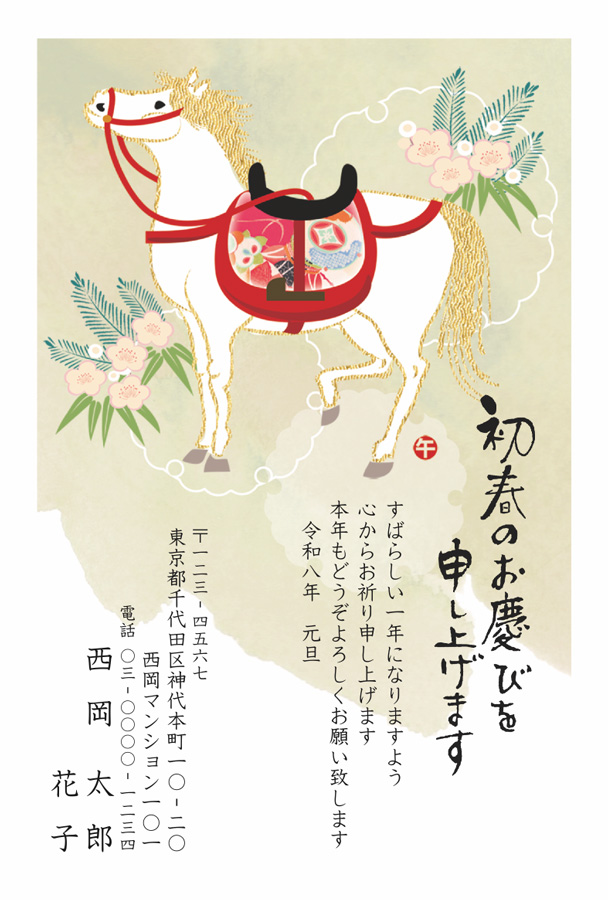 初春のお慶びを
申し上げます
午
すばらしい一年になりますよう
心からお祈り申し上げます
本年もどうぞよろしくお願い致します
令和八年　元旦
〒一二三-四五六七
東京都千代田区神代本町一〇-二〇
西岡マンション一〇一
電話　〇三-〇〇〇〇-一二三四
西岡　太郎
花子